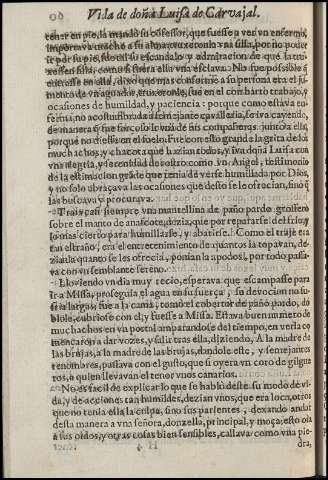 Vida de doña Luisa de Carvajal.
tener en pie, la mandò su cõfessor, que fuesse a ver vn enfermo,
importava mucho a su alma, truxeronlo vna silla, por no poder
ir por su pie, fue
entrasse en ella, di que mas conforme a su persona era el ju-
mento de vn aguador, truxeronle, fue en el con harto trabajo, y
ocasiones de humildad, y paciencia: porque como estava en-
ferma, no acostumbrada a semejante cavalleria, se iva cayendo,
de manera que fue forçoso ir vna de sus compañeras junto a ella,
porque no diesse en el suelo. Fue con esto grande la grita de los
muchachos, y chacota que hazian todos, y iva doña Luisa con
vna alegria, y serenidad de rostro como vn Angel, testimonio
de la estimacion grãde que tenia de verse humillada por Dios,
y no solo abraçava las ocasiones que desto se le ofrecian, sino q̃
las buscava, y procurava.
Traia casi siempre vna mantellina de paño pardo grossero
sobre el manto de anascote, dezia, que por repararse del frio, y
lo mas cierto para humillarse, y abatirse. Como el traje era
tan estraño, era el entretenimiento de quantos la topavan, de-
zianla quanto se les ofrecia, ponian la apodos, por todo passa-
va con vn semblante sereno.
Lloviendo vn dia muy recio, esperava que escampasse para
ir a Missa, proseguia el agua en su fuerça, su devocion no su-
fria largas, fue a la cama, tomò el cobertor de paño pardo, do
blole, cubriose con el, y fuesse a Missa. Estava buen numero de
muchachos en vn portal amparandose del tiempo, en verla co
mençaron a dar vozes, y salir tras ella, diziendo, A la madre de
las brujas, a la madre de las brujas, dandole este, y semejantes
renombres, passava con el gusto, que si oyera vn coro de gilgue
ros, a quien llevavan el tenor vnos canarios.
No es facil de explicar lo que se hablò deste su modo de vi-
da, y de acciones tan humildes, dezian vnos, que era loca, otros
que no tenia ella la culpa, sino sus parientes, dexando andar
desta manera a vna señora, donzella, principal, y moça; esto oìa
a sus oìdos, y otras cosas bien sensibles, callava como vna pie-
H 4
dra,